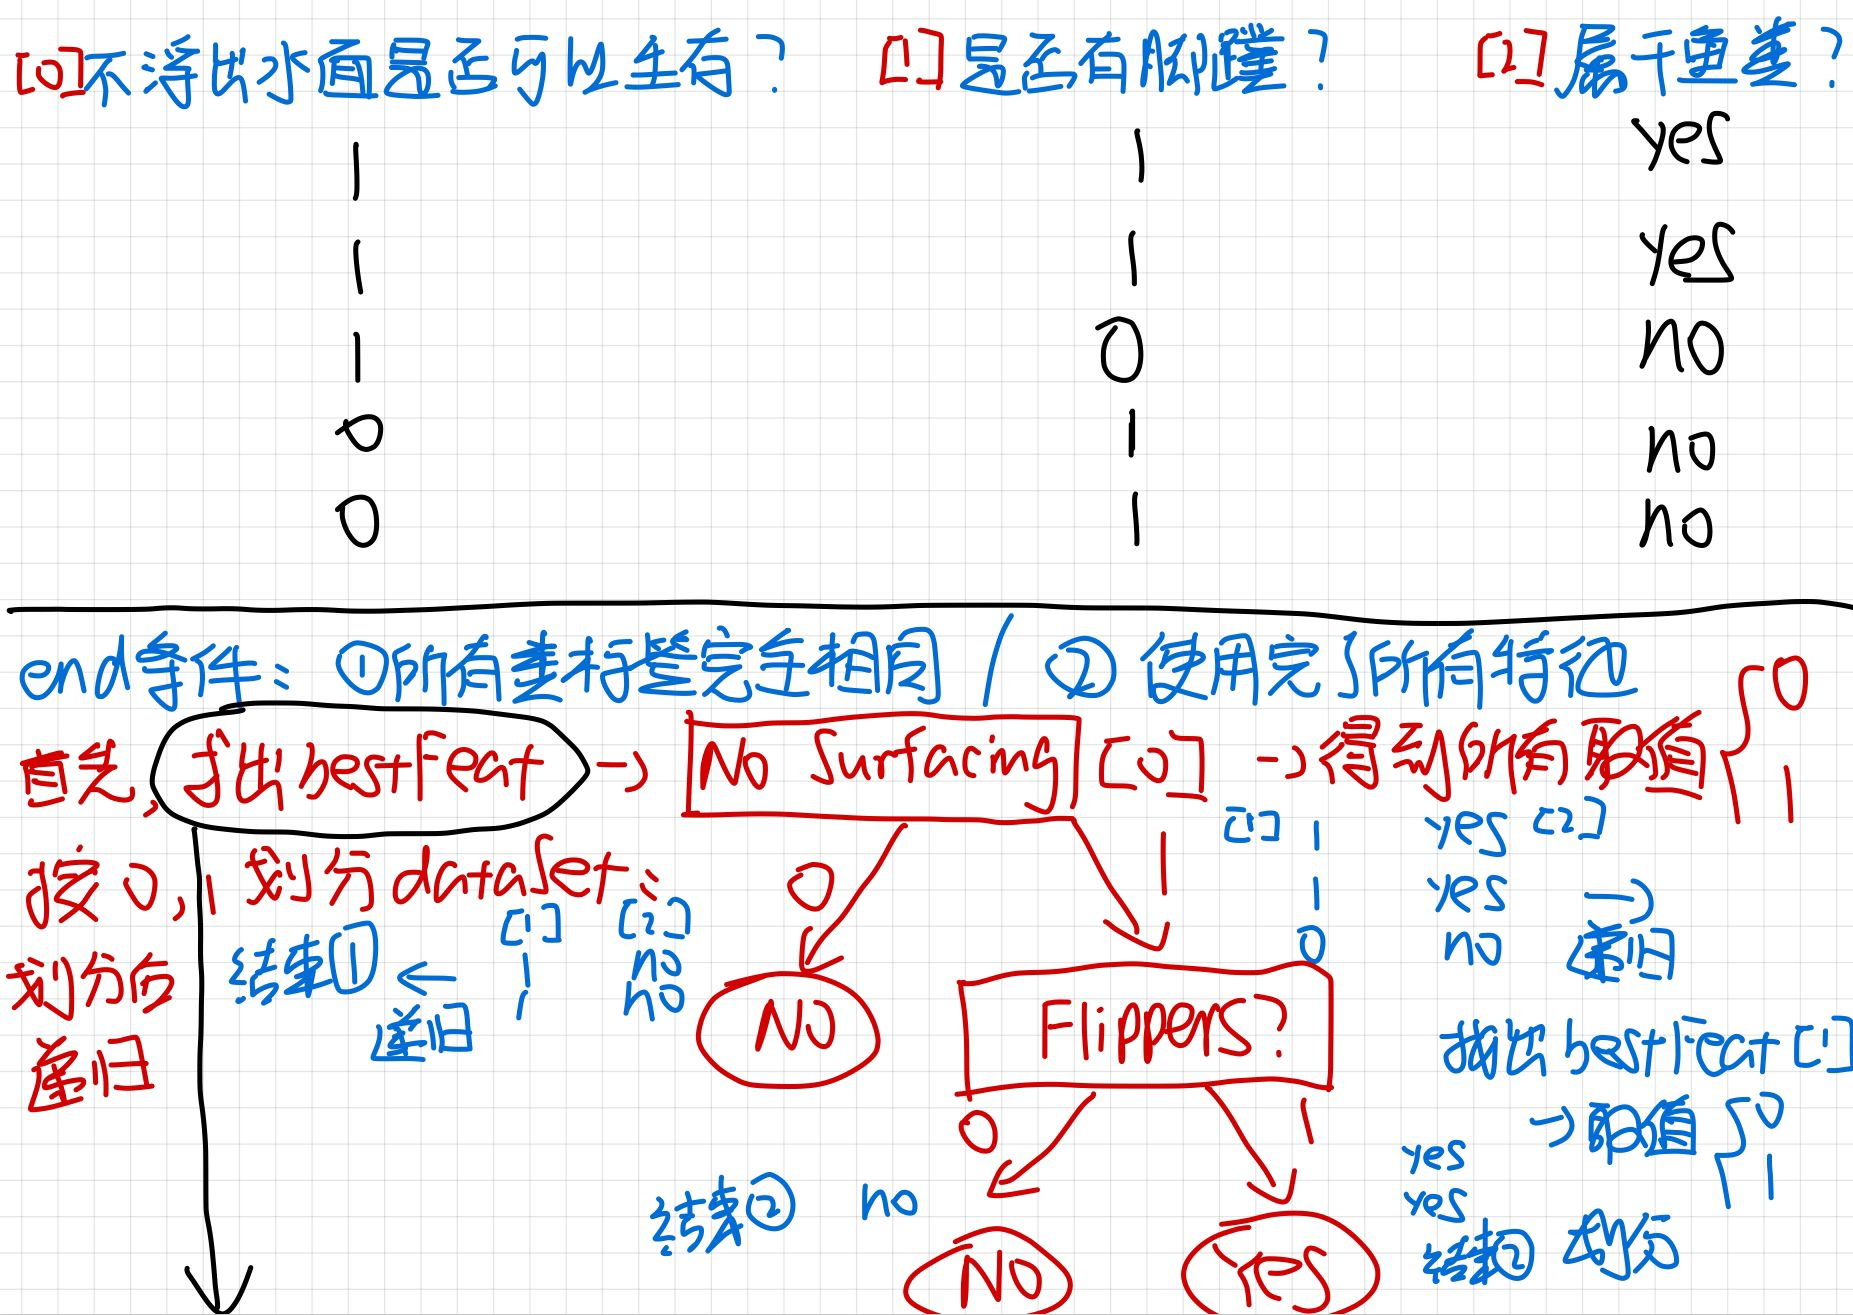 [0]不浮出水面是否可以生存? [1]是否有脚蹼? [2]属于鱼类?
1 1 yes
1 1 yes
1 0 no
0 1 no
0 1 no
end条件: ①所有类标签完全相同 / ②使用完了所有特征
首先, 找出bestFeat → No Surfacing [0] → 得到所有取值 { 0 1
按0,1划分dataSet;
划分后
递归
0 1
[1] [2]
1 no
1 no
← 递归
结束①
NO
[1] [2]
1 yes
1 yes
0 no
→ 递归
Flippers?
找出bestFeat[1]
→ 取值 { 0 1
划分
0 1
结束② no
yes
yes
结束②
NO YES